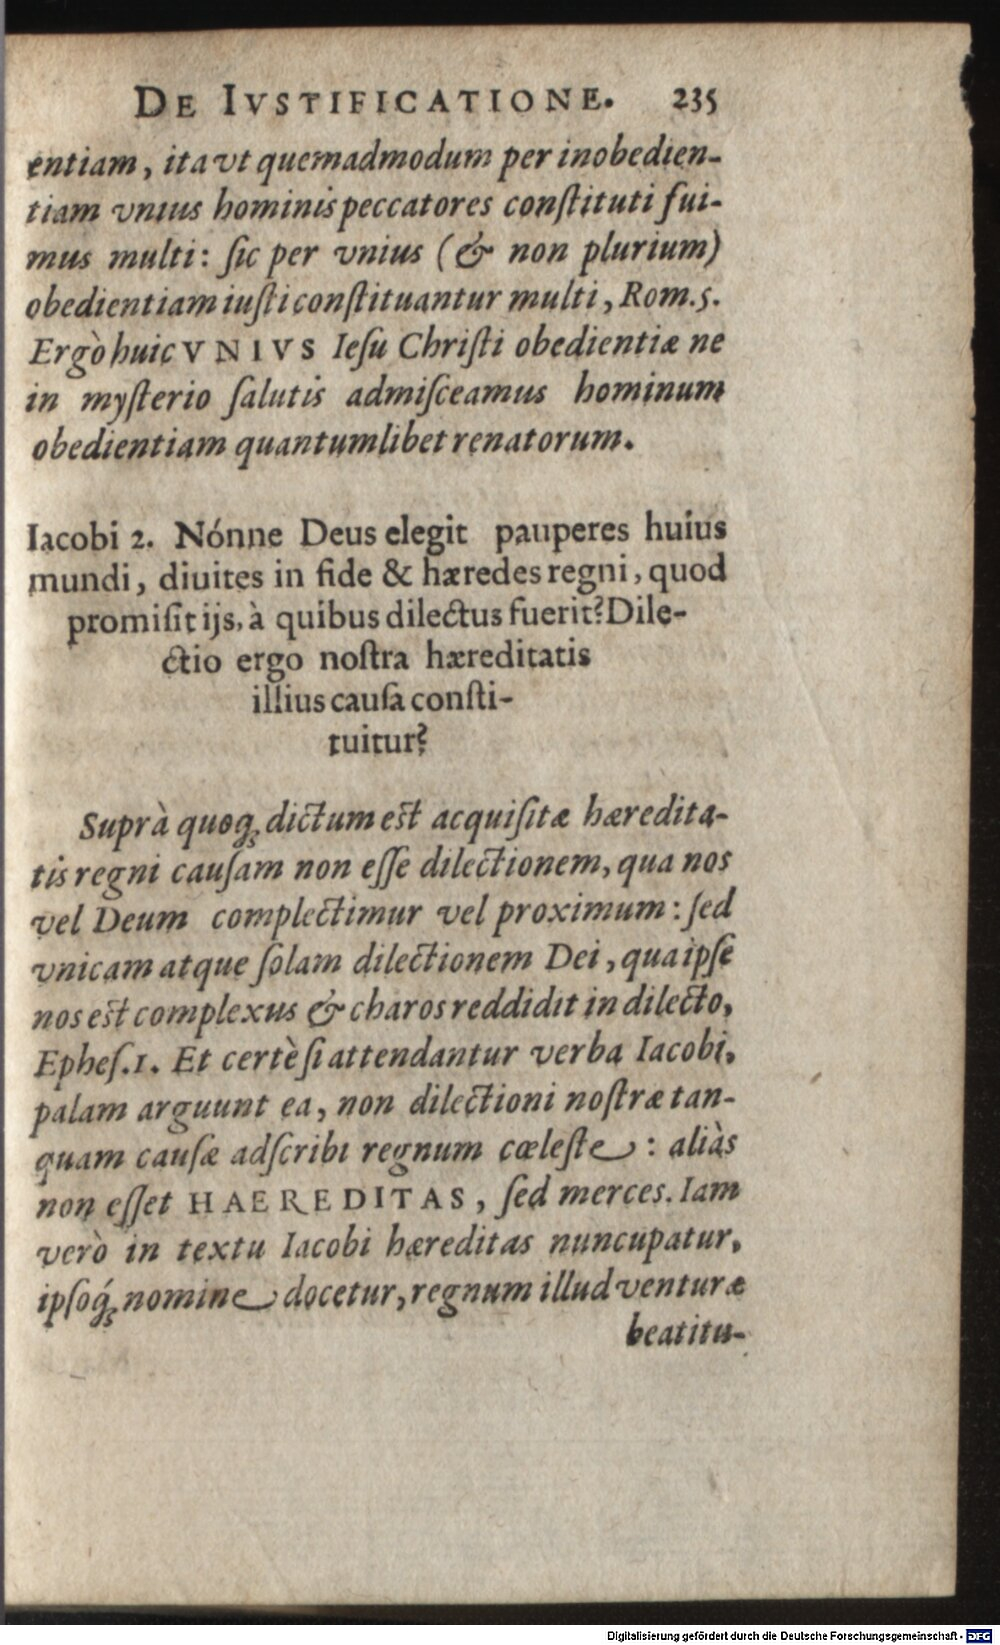 DE IVSTIFICATIONE. 235
entiam, ita vt quemadmodum per inobedien-
tiam vnius hominis peccatores conſtituti fui-
mus multi: ſic per vnius (& non plurium)
obedientiam iuſti conſtituantur multi, Rom. 5.
Ergò huic VNIVS Ieſu Chriſti obedientiæ ne
in myſterio ſalutis admiſceamus hominum
obedientiam quantumlibet renatorum.
Iacobi 2. Nónne Deus elegit pauperes huius
mundi, diuites in fide & hæredes regni, quod
promiſit ijs, à quibus dilectus fuerit? Dile-
ctio ergo noſtra hæreditatis
illius cauſa conſti-
tuitur?
Suprà quoq; dictum est acquiſitæ hæredita-
tis regni cauſam non eſſe dilectionem, qua nos
vel Deum complectimur vel proximum: ſed
vnicam atque ſolam dilectionem Dei, qua ipſe
nos est complexus & charos reddidit in dilecto,
Epheſ. 1. Et certè ſi attendantur verba Iacobi,
palam arguunt ea, non dilectioni noſtræ tan-
quam cauſæ adſcribi regnum cœleſte: aliàs
non eſſet HAEREDITAS, ſed merces. Iam
verò in textu Iacobi hæreditas nuncupatur,
ipſoq́; nomine docetur, regnum illud venturæ
beatitu-
Digitalisierung gefördert durch die Deutsche Forschungsgemeinschaft - DFG